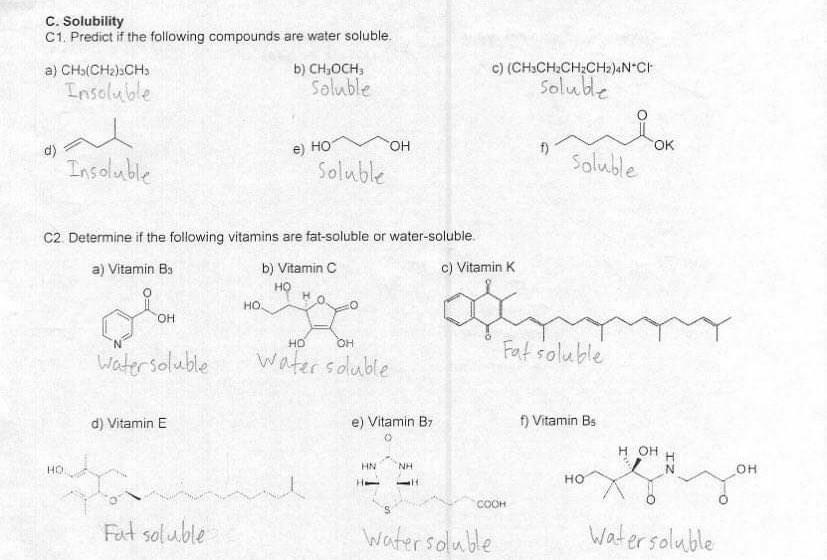 C. Solubility
C1. Predict if the following compounds are water soluble.
a) CH₃(CH₂)₅CH₃ b) CH₃OCH₃ c) (CH₃CH₂CH₂CH₂)₄N⁺Cl⁻
Insoluble Soluble Soluble
O
d) e) HO OH f) OK
Insoluble Soluble Soluble
C2. Determine if the following vitamins are fat-soluble or water-soluble.
a) Vitamin B₃ b) Vitamin C c) Vitamin K
O HO H O O O
HO
OH
N HO OH O
Water soluble Water soluble Fat soluble
d) Vitamin E e) Vitamin B₇ f) Vitamin B₅
O H OH H
HO HN NH N OH
H H HO
O S COOH O O
Fat soluble Water soluble Water soluble